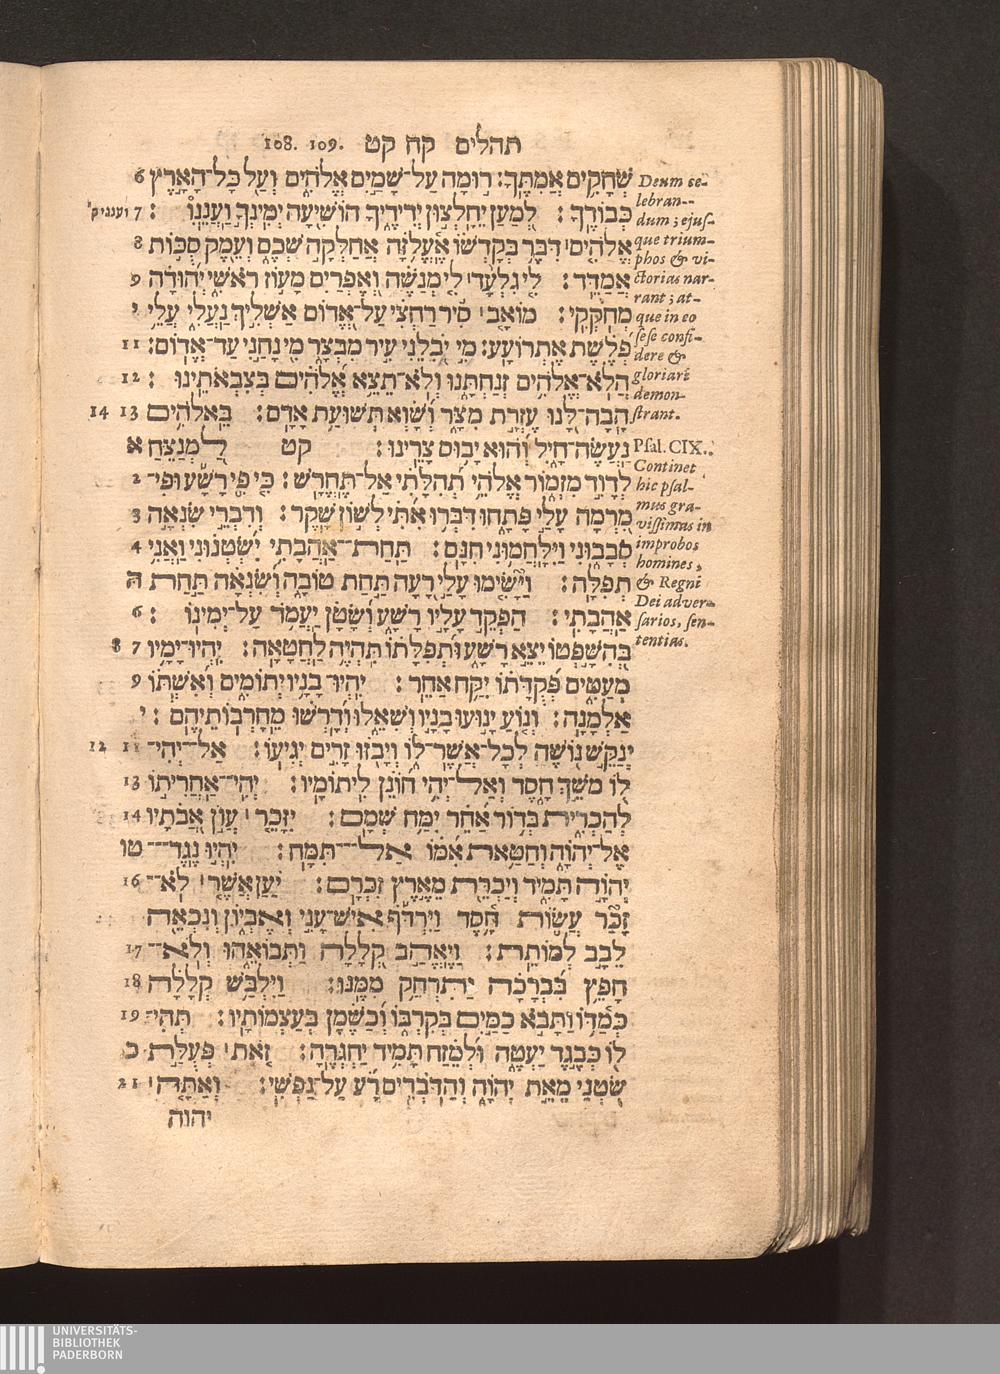 108. 109. תהלים קח קט
שְׁחָקִים אֲמִתֶּךָ: רוּמָה עַל־שָׁמַיִם אֱלֹהִים וְעַל כָּל־הָאָרֶץ 6
כְּבוֹדֶךָ: לְמַעַן יֵחָלְצוּן יְדִידֶיךָ הוֹשִׁיעָה יְמִינְךָ וַעֲנֵנִוֹ: 7 ועננו ק'
אֱלֹהִים דִּבֶּר בְּקָדְשׁוֹ אֶעֱלֹזָה אֲחַלְּקָה שְׁכֶם וְעֵמֶק סֻכּוֹת 8
אֲמַדֵּד: לִי גִלְעָד לִי מְנַשֶּׁה וְאֶפְרַיִם מָעוֹז רֹאשִׁי יְהוּדָה 9
מְחֹקְקִי: מוֹאָב סִיר רַחְצִי עַל־אֱדוֹם אַשְׁלִיךְ נַעֲלִי עֲלֵי י
פְלֶשֶׁת אֶתְרוֹעָע: מִי יֹבִלֵנִי עִיר מִבְצָר מִי נָחַנִי עַד־אֱדוֹם: 11
הֲלֹא־אֱלֹהִים זְנַחְתָּנוּ וְלֹא־תֵצֵא אֱלֹהִים בְּצִבְאֹתֵינוּ: 12
הָבָה־לָּנוּ עֶזְרָת מִצָּר וְשָׁוְא תְּשׁוּעַת אָדָם: בֵּאלֹהִים 13 14
נַעֲשֶׂה־חָיִל וְהוּא יָבוּס צָרֵינוּ: קט לַמְנַצֵּחַ א
לְדָוִד מִזְמוֹר אֱלֹהֵי תְהִלָּתִי אַל־תֶּחֱרַשׁ: כִּי פִי רָשָׁע וּפִי־ 2
מִרְמָה עָלַי פָּתָחוּ דִּבְּרוּ אִתִּי לְשׁוֹן שָׁקֶר: וְדִבְרֵי שִׂנְאָה 3
סְבָבוּנִי וַיִּלָּחֲמוּנִי חִנָּם: תַּחַת־אַהֲבָתִי יִשְׂטְנוּנִי וַאֲנִי 4
תְפִלָּה: וַיָּשִׂימוּ עָלַי רָעָה תַּחַת טוֹבָה וְשִׂנְאָה תַּחַת ה
אַהֲבָתִי: הַפְקֵד עָלָיו רָשָׁע וְשָׂטָן יַעֲמֹד עַל־יְמִינוֹ: 6
בְּהִשָּׁפְטוֹ יֵצֵא רָשָׁע וּתְפִלָּתוֹ תִּהְיֶה לַחֲטָאָה: יִהְיוּ־יָמָיו 7 8
מְעַטִּים פְּקֻדָּתוֹ יִקַּח אַחֵר: יִהְיוּ־בָנָיו יְתוֹמִים וְאִשְׁתּוֹ 9
אַלְמָנָה: וְנוֹעַ יָנוּעוּ בָנָיו וְשִׁאֵלוּ וְדָרְשׁוּ מֵחָרְבוֹתֵיהֶם: י
יְנַקֵּשׁ נוֹשֶׁה לְכָל־אֲשֶׁר־לוֹ וְיָבֹזּוּ זָרִים יְגִיעוֹ: אַל־יְהִי־ 11 12
לוֹ מֹשֵׁךְ חָסֶד וְאַל־יְהִי חוֹנֵן לִיתוֹמָיו: יְהִי־אַחֲרִיתוֹ 13
לְהַכְרִית בְּדוֹר אַחֵר יִמַּח שְׁמָם: יִזָּכֵר עֲוֹן אֲבֹתָיו 14
אֶל־יְהוָֹה וְחַטַּאת אִמּוֹ אַל־תִּמָּח: יִהְיוּ נֶגֶד־ טו
יְהוָֹה תָּמִיד וְיַכְרֵת מֵאֶרֶץ זִכְרָם: יַעַן אֲשֶׁר לֹא־ 16
זָכַר עֲשׂוֹת חָסֶד וַיִּרְדֹּף אִישׁ־עָנִי וְאֶבְיוֹן וְנִכְאֵה
לֵבָב לְמוֹתֵת: וַיֶּאֱהַב קְלָלָה וַתְּבוֹאֵהוּ וְלֹא־ 17
חָפֵץ בִּבְרָכָה וַתִּרְחַק מִמֶּנּוּ: וַיִּלְבַּשׁ קְלָלָה 18
כְּמַדּוֹ וַתָּבֹא כַמַּיִם בְּקִרְבּוֹ וְכַשֶּׁמֶן בְּעַצְמוֹתָיו: תְּהִי־ 19
לוֹ כְּבֶגֶד יַעְטֶה וּלְמֵזַח תָּמִיד יַחְגְּרֶהָ: זֹאת פְּעֻלַּת כ
שֹׂטְנַי מֵאֵת יְהוָֹה וְהַדֹּבְרִים רָע עַל־נַפְשִׁי: וְאַתָּה 21
יהוה
Deum ce-
lebran-
dum; ejus-
que trium-
phos & vi-
ctorias nar-
rant; at-
que in eo
sese confi-
dere &
gloriari
demon-
strant.
Psal. CIX.
Continet
hic psal-
mus gra-
vissimas in
improbos
homines,
& Regni
Dei adver-
sarios, sen-
tentias.
UNIVERSITÄTS-
BIBLIOTHEK
PADERBORN